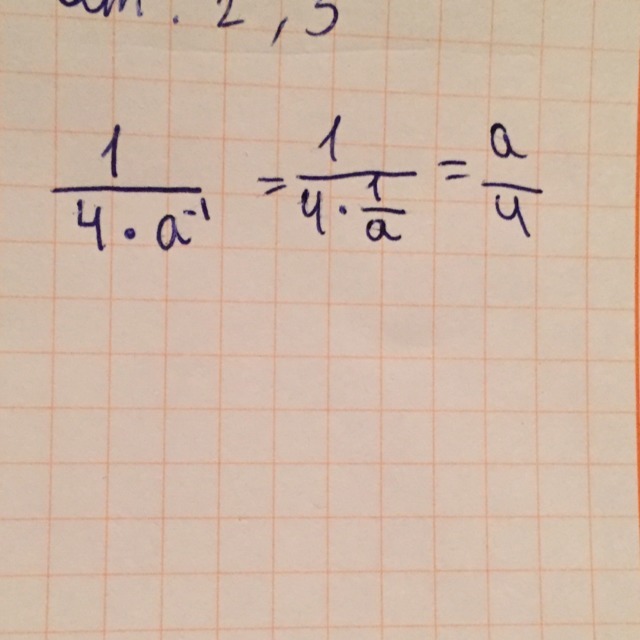 2,5
\frac{1}{4 \cdot a^{-1}} = \frac{1}{4 \cdot \frac{1}{a}} = \frac{a}{4}